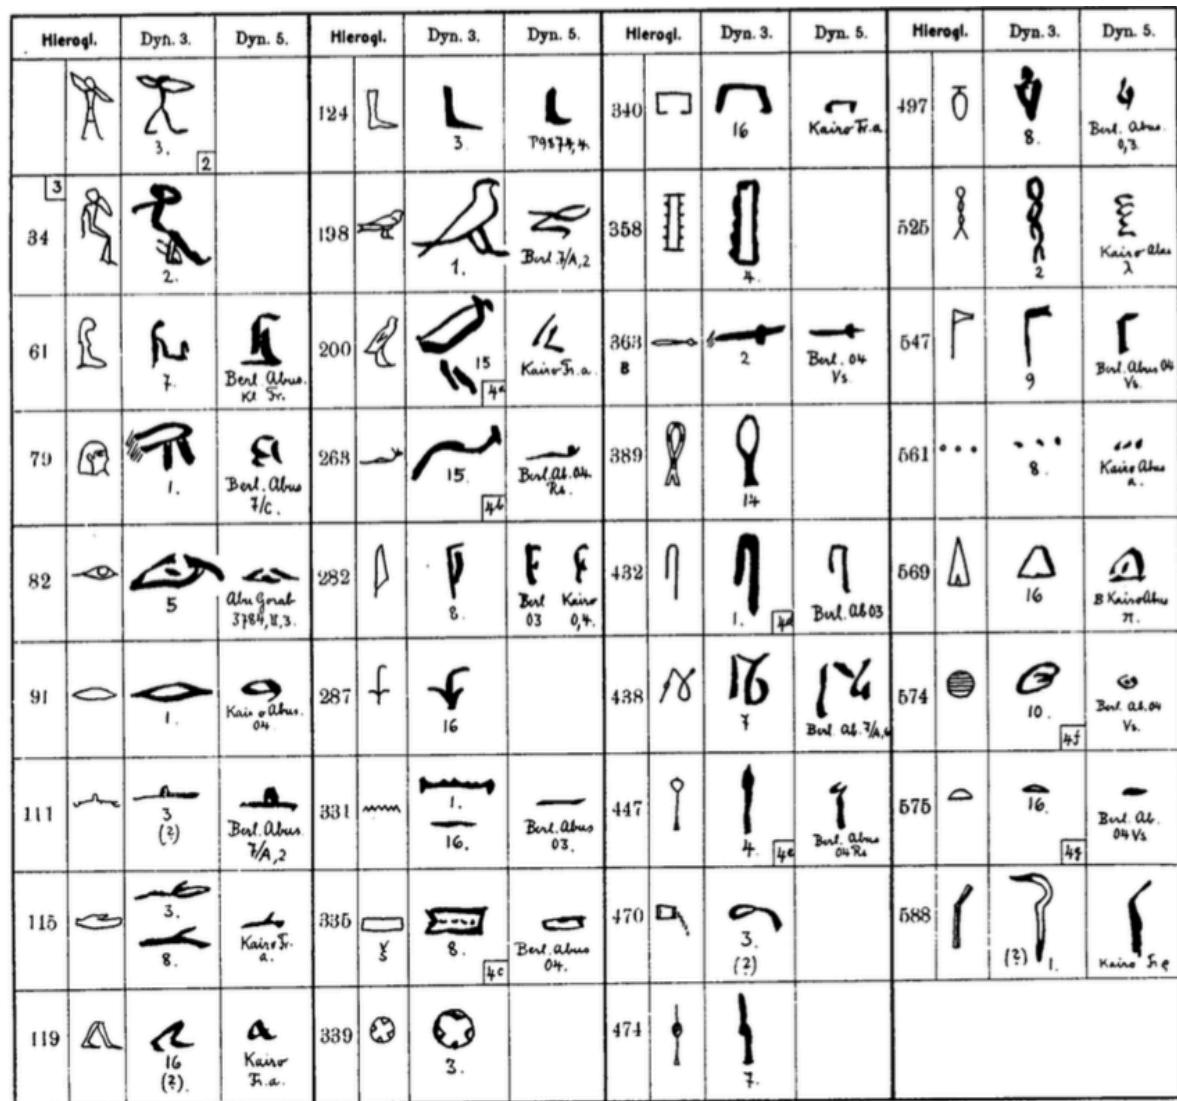 Hierogl. Dyn. 3. Dyn. 5.
3. 2
3
34 2.
61 7. Berl. Abus.
Kl. Fr.
79 1. Berl. Abus
7/C.
82 5 Abu Gorab
3784, V, 3.
91 1. Kairo Abus.
04.
111 3 (?) Berl. Abus.
7/A, 2
115 3.
8. Kairo Fr.
a.
119 16 (?). Kairo
Fr. a.
Hierogl. Dyn. 3. Dyn. 5.
124 3. P9874, 4.
198 1. Berl. 7/A, 2
200 15 Kairo Fr. a.
4a
263 15. Berl. Ab. 04.
Rs.
4b
282 8. Berl 03 Kairo 0,4.
287 16
331 1.
16. Berl. Abus
03.
335 8. Berl. Abus
04.
4c
339 3.
Hierogl. Dyn. 3. Dyn. 5.
340 16 Kairo Fr. a.
358 4.
363 B 2 Berl. 04
Vs.
389 14
432 1. Berl. Ab 03
4d
438 7 Berl. Ab. 7/A, 4
447 4. Berl. Abus
04 Rs
4e
470 3.
(?)
474 7.
Hierogl. Dyn. 3. Dyn. 5.
497 8. Berl. Abus.
0,3.
525 2 Kairo Abus
λ
547 9 Berl. Abus 04
Vs.
561 8. Kairo Abus
a.
569 16 B Kairo Abus
π.
574 10. Berl. Ab. 04
Vs.
4f
575 16. Berl. Ab.
04 Vs
4g
588 (?) 1. Kairo Fr. e